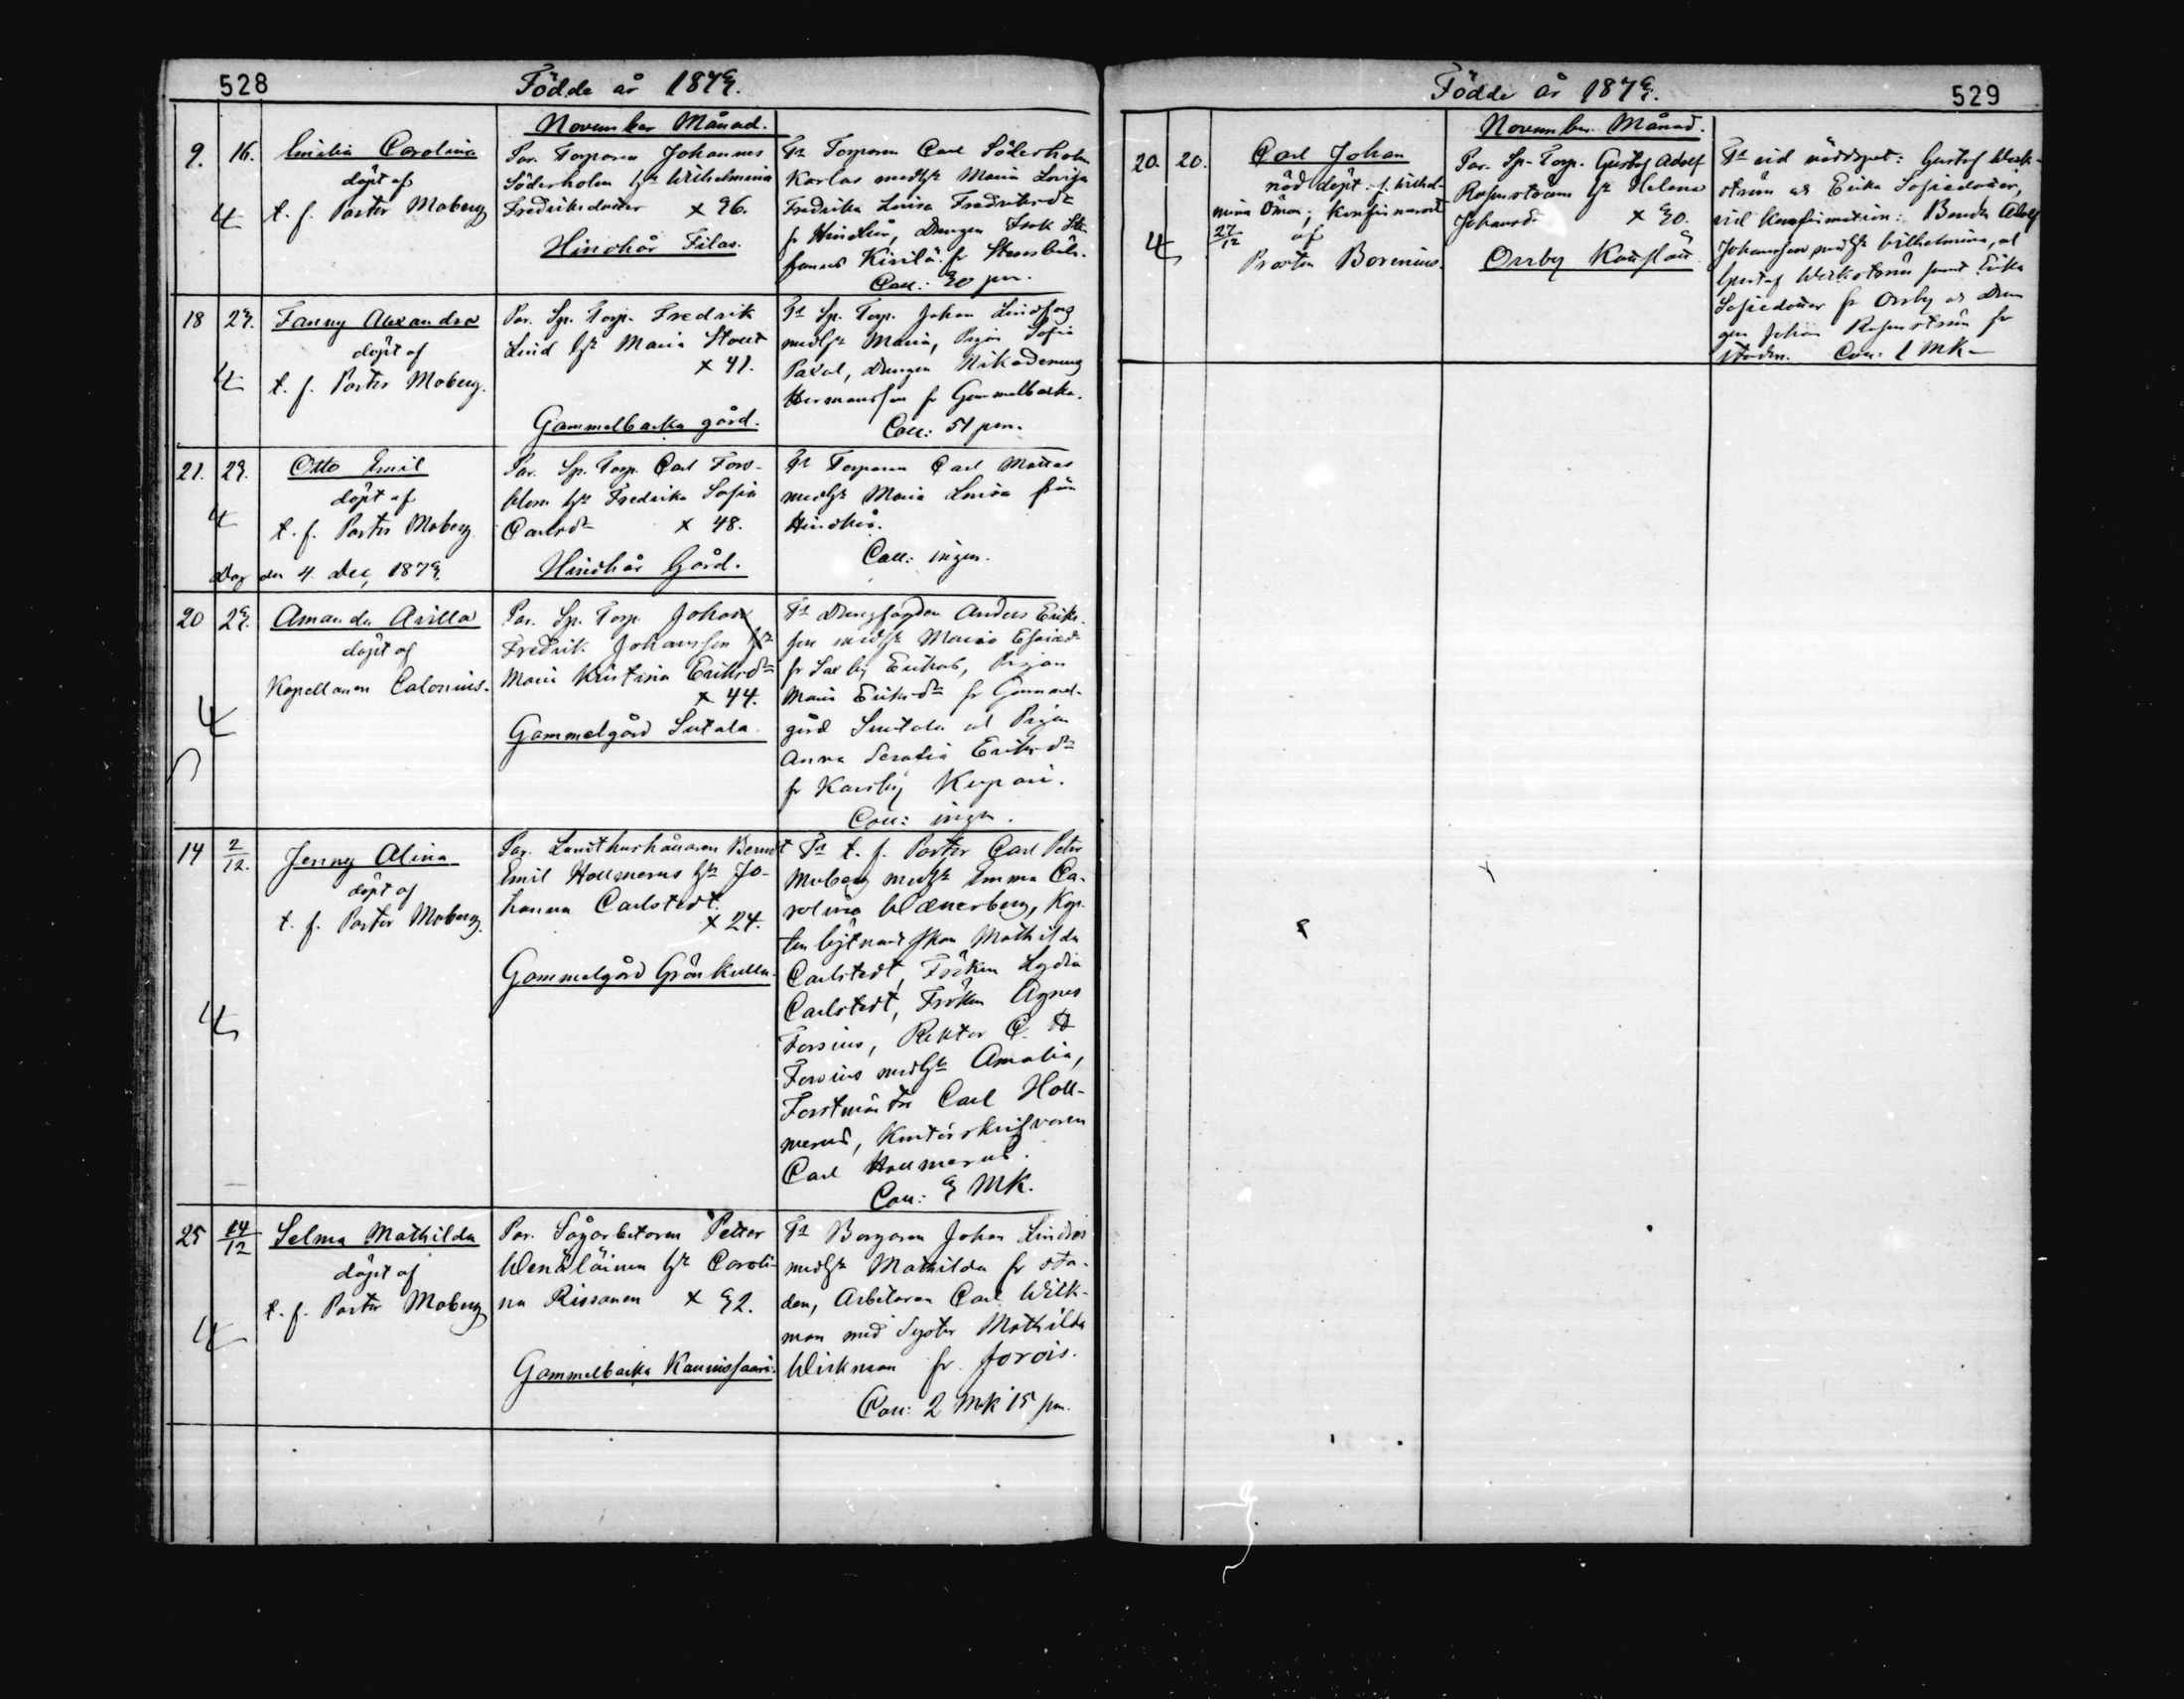 528
Födde år 187
November Månad.
9. 16. Emilia Carolina
döpt af
t. f. Pastor Moberg
4
Par. Torparen Johannes
Söderholm hst Wilhelmina
Fredriksdotter x 96.
Hindhår Filas.
Ft Torparen Carl Söderholm
Karlas medhst Maria Lovisa
Fredrika Lovisa Fredriksdr
fr Hindhår, Drengen Isak
Kivilä fr Stensböle.
Coll: 0 pen.
18 2. Fanny Alexandra
döpt af
t. f. Pastor Moberg.
4
Par. Sp. Torp. Fredrik
Lind hst Maria
x 41.
Gammelbacka gård.
Ft Sp. Torp. Johan
medhst Maria, Pigan Sofia
drengen Nikodemus
Hermansson fr Gammelbacka.
Coll: 51 pen.
21. 2. Otto Emil
döpt af
t. f. Pastor Moberg
4
den 4. Dec. 187
Par. Sp. Torp. Carl Fors-
blom hst Fredrika Sofia
Carlsdr x 48.
Hindhår Gård.
Ft Torparen Carl Mattas
medhst Maria Lovisa från
Hindhår.
Coll: ingen.
20 2. Amanda Avilla
döpt af
Kapellanen Calonius.
4
Par. Sp. Torp. Johan
Fredrik Johansson hst
Maria Kristina Eriksdr
x 44.
Gammelgård Sutala.
Ft Drengfogden Anders Eriks-
son medhst Maria Esaiædr
fr Saxby Erikas, Pigan
Maria Eriksdr fr Gammel-
gård Suutala och Pigan
Anna Serafia Eriksdr
fr Karsby Kupari.
Coll: ingen.
14 2/12. Jenny Alina
döpt af
t. f. Pastor Moberg.
4
Par. Landthushållaren Berndt
Emil Hollmerus hst Jo-
hanna Carlstedt.
x 24.
Gammelgård Grönkulla.
Ft t. f. Pastor Carl Peter
Moberg medhst Emma Ca-
rolina Wænerberg, Kap-
tenlöjtnantskan Mathilda
Carlstedt, Fröken Lydia
Carlstedt, Fröken Agnes
Forsius, Rektor C.
Forsius medhst Amalia,
Forstmästar Carl Holl-
merus, Kontorskrifvaren
Carl Hollmerus.
Coll: MK.
25 14/12 Selma Mathilda
döpt af
t. f. Pastor Moberg
4
Par. Sågarbetaren Petter
Wenäläinen hst Caroli-
na Rissanen x 2.
Gammelbacka Kaunissaari.
Ft Borgaren Johan Lindros
medhst Mathilda fr sta-
den, Arbetaren Carl Wick-
man med Syster Mathilda
Wickman fr Jorois.
Coll: 2 Mk 15 pen.
Födde år 187
529
November Månad.
20. 20. Carl Johan
nöddöpt f. Wilhel-
mina Öman; Konfirmerad
27/12 af
Prosten Borenius.
4
Par. Sp. Torp. Gustaf Adolf
Rosenström hst Helena
Johansdr x 0.
Orrby
Ft vid nöddopet: Gustaf Weck-
ström och Erika Sofiedotter,
vid konfirmation: Bonden Adolf
Johansson medhst Wilhelmina, och
Gustaf Weckström samt Erika
Sofiedotter fr Orrby och Dren-
gen Johan Rosenström fr
staden. Coll: 1 MK